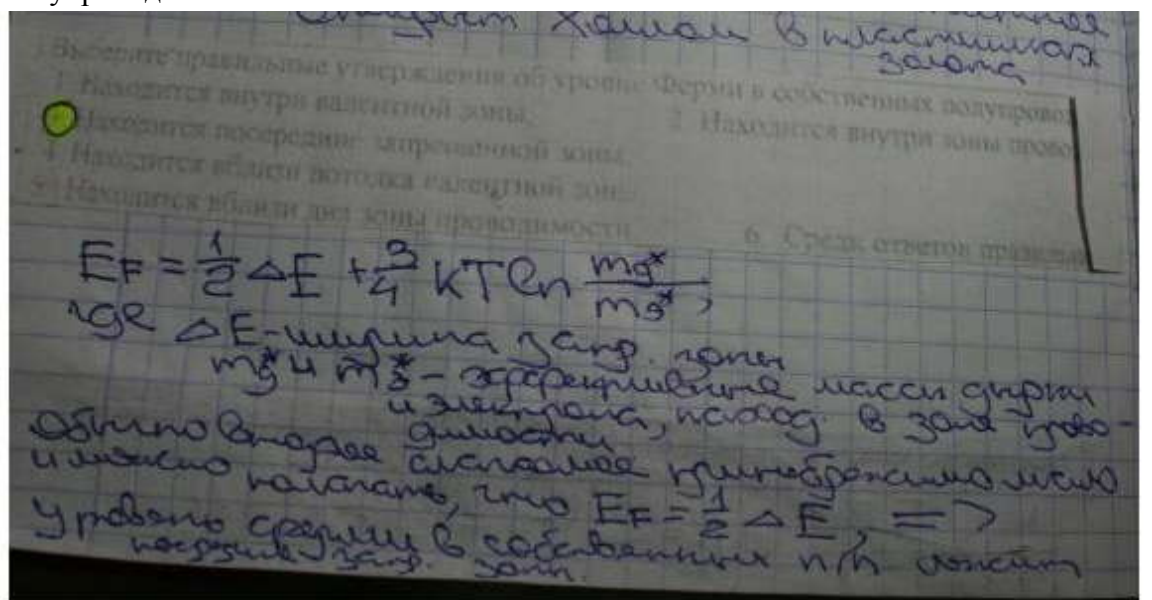 Открыт Холлом в пластинках
золота
Выберите правильные утверждения об уровне Ферми в собственных полупровод
1 Находится внутри валентной зоны, 2 Находится внутри зоны прово
Находится посередине запрещенной зоны,
4 Находится вблизи потолка валентной зоны
Находится вблизи дна зоны проводимости 6 Среди ответов правиль
E_F = 1/2 ΔE + 3/4 kT ln m_д*/m_э*,
где ΔE - ширина запр. зоны
m_д* и m_э* - эффективные массы дырки
и электрона, наход. в зоне прово-
димости
Обычно второе слагаемое пренебрежимо мало
и можно полагать, что E_F = 1/2 ΔE, =>
Уровень Ферми в собственных п/п лежит
посредине запр. зоны.